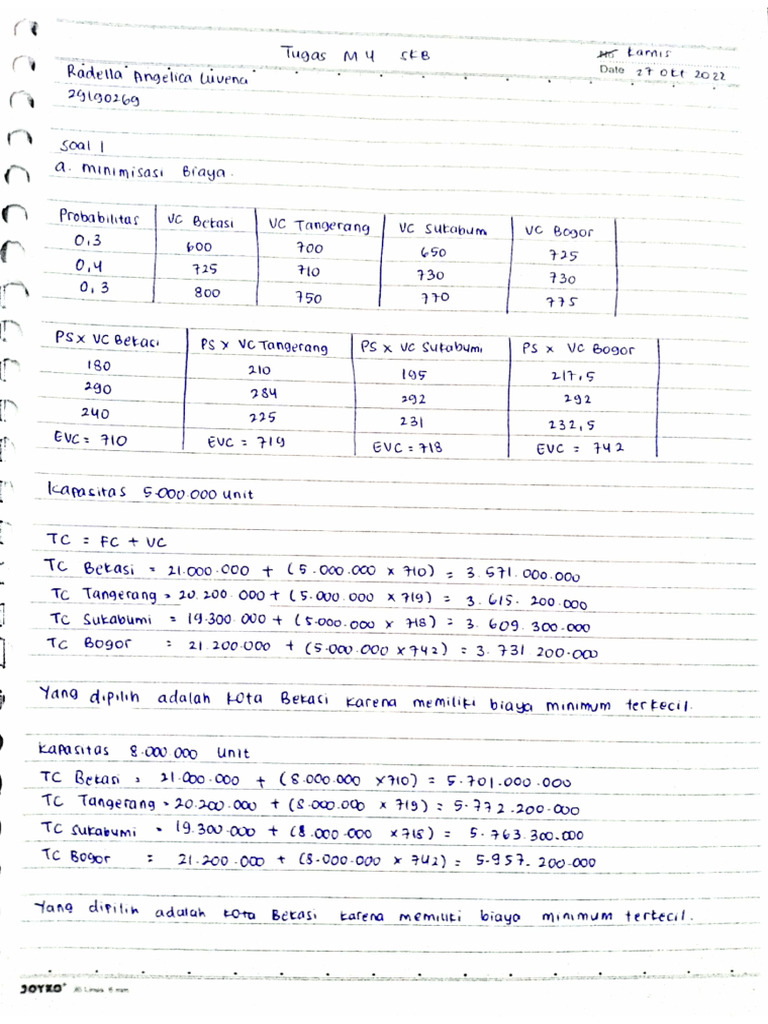 Tugas M4 SKB
No Kamis
Radella Angelica Luvena
Date 27 Okt 2022
29190269
Soal 1
a. Minimisasi Biaya.
Probabilitas | VC Bekasi | VC Tangerang | VC Sukabumi | VC Bogor
0,3 | 600 | 700 | 650 | 725
0,4 | 725 | 710 | 730 | 730
0,3 | 800 | 750 | 770 | 775
PS x VC Bekasi | PS x VC Tangerang | PS x VC Sukabumi | PS x VC Bogor
180 | 210 | 195 | 217,5
290 | 284 | 292 | 292
240 | 225 | 231 | 232,5
EVC = 710 | EVC = 719 | EVC = 718 | EVC = 742
Kapasitas 5.000.000 unit
TC = FC + VC
TC Bekasi = 21.000.000 + (5.000.000 x 710) = 3.571.000.000
TC Tangerang = 20.200.000 + (5.000.000 x 719) = 3.615.200.000
TC Sukabumi = 19.300.000 + (5.000.000 x 718) = 3.609.300.000
TC Bogor = 21.200.000 + (5.000.000 x 742) = 3.731 200.000
Yang dipilih adalah kota Bekasi karena memiliki biaya minimum terkecil.
Kapasitas 8.000.000 unit
TC Bekasi = 21.000.000 + (8.000.000 x 710) = 5.701.000.000
TC Tangerang = 20.200.000 + (8.000.000 x 719) = 5.772.200.000
TC Sukabumi = 19.300.000 + (8.000.000 x 718) = 5.763.300.000
TC Bogor = 21.200.000 + (8.000.000 x 742) = 5.957.200.000
Yang dipilih adalah kota Bekasi karena memiliki biaya minimum terkecil.
JOYKO 26 Lines 8 mm